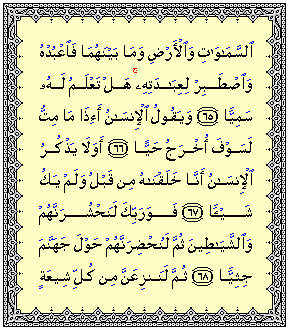 ٱلسَّمَٰوَٰتِ وَٱلْأَرْضِ وَمَا بَيْنَهُمَا فَٱعْبُدْهُ
وَٱصْطَبِرْ لِعِبَٰدَتِهِۦ هَلْ تَعْلَمُ لَهُۥ
سَمِيًّا ٦٥ وَيَقُولُ ٱلْإِنسَٰنُ أَءِذَا مَا مِتُّ
لَسَوْفَ أُخْرَجُ حَيًّا ٦٦ أَوَلَا يَذْكُرُ
ٱلْإِنسَٰنُ أَنَّا خَلَقْنَٰهُ مِن قَبْلُ وَلَمْ يَكُ
شَيْـًٔا ٦٧ فَوَرَبِّكَ لَنَحْشُرَنَّهُمْ
وَٱلشَّيَٰطِينَ ثُمَّ لَنُحْضِرَنَّهُمْ حَوْلَ جَهَنَّمَ
جِثِيًّا ٦٨ ثُمَّ لَنَنزِعَنَّ مِن كُلِّ شِيعَةٍ